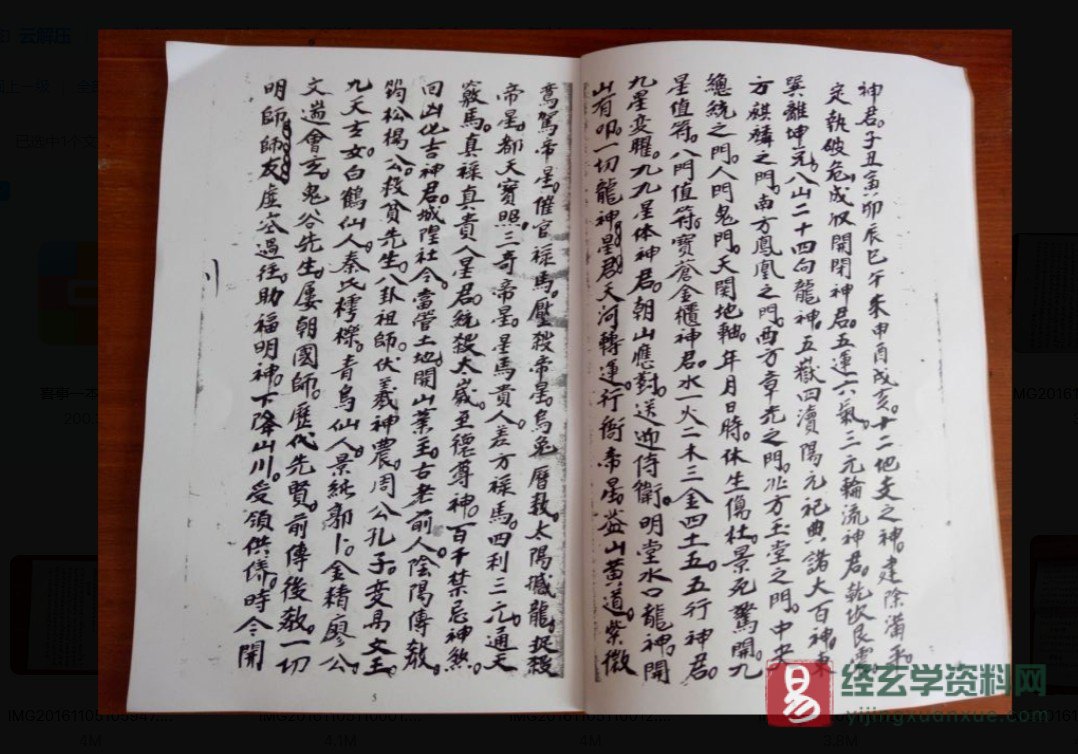 神君。子丑寅卯辰巳午未申酉戌亥。十二地支之神。建除滿平。
定執破危成收開閉神君。五運六氣。三元輪流神君。乾坎艮震
巽離坤兌。八山二十四向龍神。五嶽四瀆陽元祀典諸大百神。東
方麒麟之門。南方鳳凰之門。西方章光之門。北方玉堂之門。中央
總統之門。人門鬼門。天関地軸。年月日時。休生傷杜景死驚開。九
星值符。八門值符。寶倉金櫃神君。水一火二木三金四土五。五行神君。
九星変曜。九九星体神君。朝山應對。送迎侍衛。明堂水口龍神。開
山有叩。一切龍神。星君。天河轉運。行衙帝星。益山黃道。紫微
鸞駕帝星。催官禄馬。壓殺帝星。烏兔曆数。太陽撼龍。捉殺
帝星。都天寶照。三奇帝星。星馬貴人。差方禄馬。四利三元。通天
竅馬。真禄真貴人星君。統殺大歲至德尊神。百千禁忌神煞。
回凶化吉神君。城隍社令。當管土地。開山業主。古老前人。陰陽傳教。
筠松楊公。救貧先生。八卦祖師。伏羲神農。周公孔子。文王
九天玄女。白鶴仙人。秦氏樗櫟。青烏仙人。景純郭卜。金精廖公。
文遄會玄。鬼谷先生。屢朝國師。歷代先賢。前傳後教。一切
明師師友。虛空過往。助福明神。下降山川。受領供俻。時令開
5
易
经玄学资料网
yijingxuanxue.com
云解压
已选中1个文
4.1M
4M
3.8M